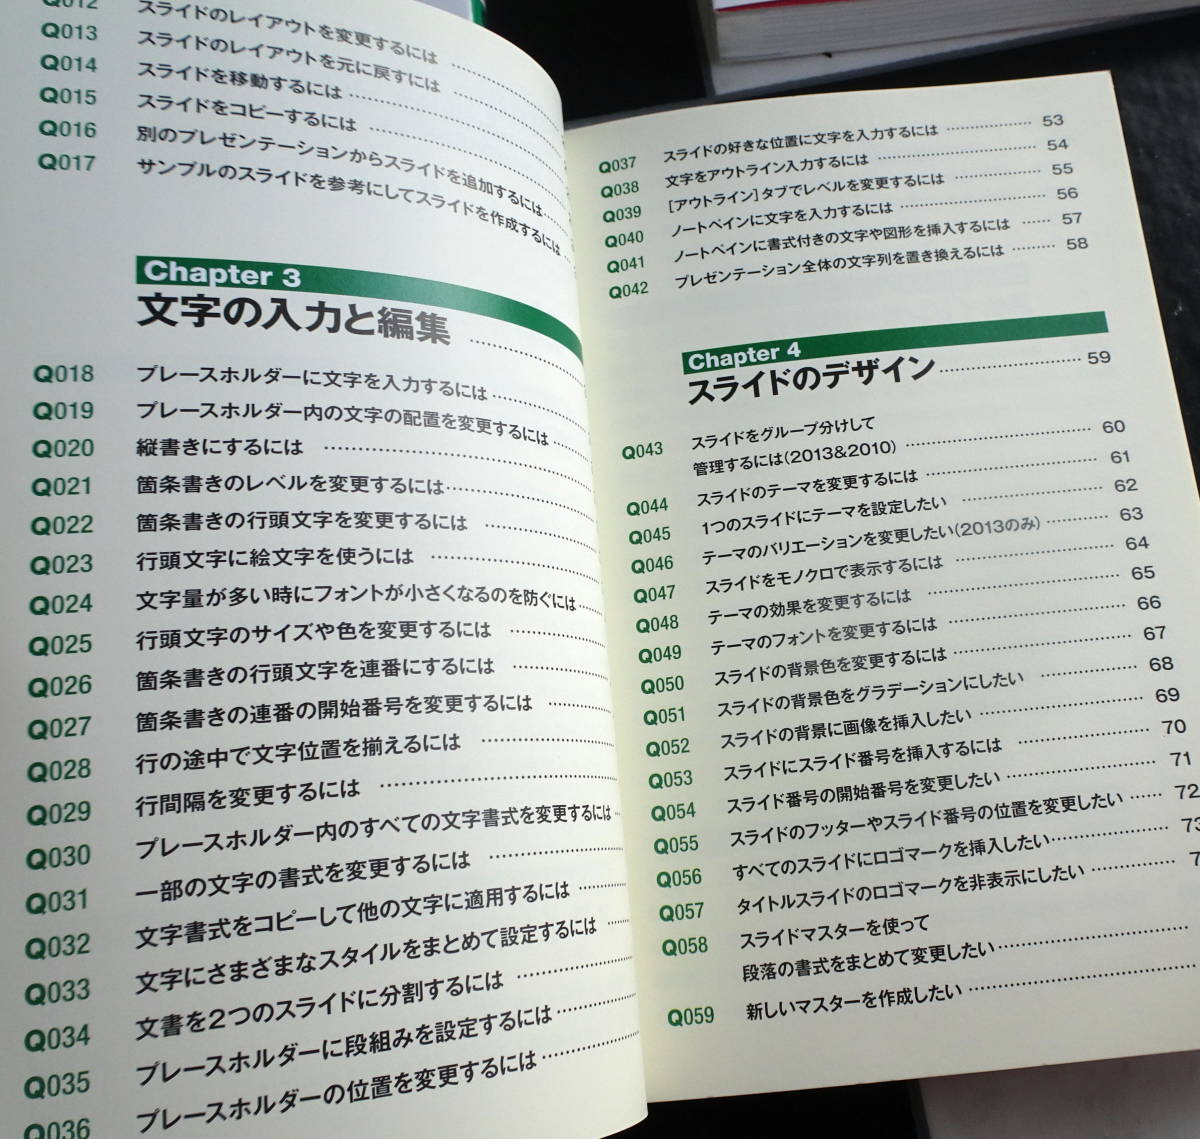 Q012 スライドのレイアウトを変更するには
Q013 スライドのレイアウトを元に戻すには
Q014 スライドを移動するには
Q015 スライドをコピーするには
Q016 別のプレゼンテーションからスライドを追加するには
Q017 サンプルのスライドを参考にしてスライドを作成するには
Chapter 3
文字の入力と編集
Q018 プレースホルダーに文字を入力するには
Q019 プレースホルダー内の文字の配置を変更するには
Q020 縦書きにするには
Q021 箇条書きのレベルを変更するには
Q022 箇条書きの行頭文字を変更するには
Q023 行頭文字に絵文字を使うには
Q024 文字量が多い時にフォントが小さくなるのを防ぐには
Q025 行頭文字のサイズや色を変更するには
Q026 箇条書きの行頭文字を連番にするには
Q027 箇条書きの連番の開始番号を変更するには
Q028 行の途中で文字位置を揃えるには
Q029 行間隔を変更するには
Q030 プレースホルダー内のすべての文字書式を変更するには
Q031 一部の文字の書式を変更するには
Q032 文字書式をコピーして他の文字に適用するには
Q033 文字にさまざまなスタイルをまとめて設定するには
Q034 文書を2つのスライドに分割するには
Q035 プレースホルダーに段組みを設定するには
Q036 プレースホルダーの位置を変更するには
Q037 スライドの好きな位置に文字を入力するには 53
Q038 文字をアウトライン入力するには 54
Q039 [アウトライン]タブでレベルを変更するには 55
Q040 ノートペインに文字を入力するには 56
Q041 ノートペインに書式付きの文字や図形を挿入するには 57
Q042 プレゼンテーション全体の文字列を置き換えるには 58
Chapter 4
スライドのデザイン 59
Q043 スライドをグループ分けして
管理するには(2013&2010) 60
Q044 スライドのテーマを変更するには 61
Q045 1つのスライドにテーマを設定したい 62
Q046 テーマのバリエーションを変更したい(2013のみ) 63
Q047 スライドをモノクロで表示するには 64
Q048 テーマの効果を変更するには 65
Q049 テーマのフォントを変更するには 66
Q050 スライドの背景色を変更するには 67
Q051 スライドの背景色をグラデーションにしたい 68
Q052 スライドの背景に画像を挿入したい 69
Q053 スライドにスライド番号を挿入するには 70
Q054 スライド番号の開始番号を変更したい 71
Q055 スライドのフッターやスライド番号の位置を変更したい 72
Q056 すべてのスライドにロゴマークを挿入したい 73
Q057 タイトルスライドのロゴマークを非表示にしたい
Q058 スライドマスターを使って
段落の書式をまとめて変更したい
Q059 新しいマスターを作成したい